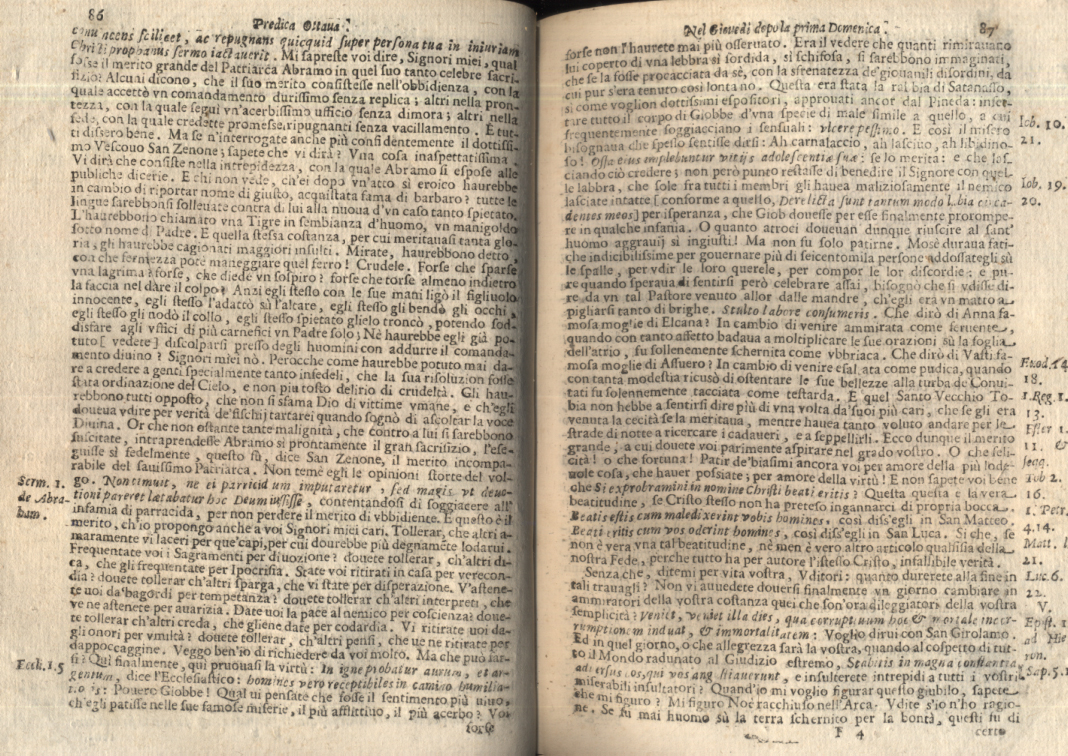 86
Predica Ottava.
conuincens scilicet, ac repugnans quicquid super persona tua in iniuriam
Christi prophanus sermo iactauerit. Mi sapreste voi dire, Signori miei, qual
fosse il merito grande del Patriarca Abramo in quel suo tanto celebre sacri-
fizio? Alcuni dicono, che il suo merito consistesse nell'obbidienza, con la
quale accettò vn comandamento durissimo senza replica; altri nella pron-
tezza, con la quale seguì vn'acerbissimo ufficio senza dimora; altri nella
fede, con la quale credette promesse, ripugnanti senza vacillamento. E tut-
ti dissero bene. Ma se n'interrogate anche più confidentemente il dottissi-
mo Vescouo San Zenone; sapete che vi dirà? Vna cosa inaspettatissima.
Vi dirà che consiste nella intrepidezza, con la quale Abramo si espose alle
publiche dicerie. E chi non vede, ch'ei dopo vn'atto sì eroico haurebbe
in cambio di riportar nome di giusto, acquistata fama di barbaro? tutte le
lingue sarebbonsi solleuate contra di lui alla nuoua d'vn caso tanto spietato.
L'haurebbono chiamato vna Tigre in sembianza d'huomo, vn manigoldo
sotto nome di Padre. E quella stessa costanza, per cui meritauasi tanta glo-
ria, gli haurebbe cagionati maggiori insulti. Mirate, haurebbono detto,
con che fermezza potè maneggiare quel ferro! Crudele. Forse che sparse
vna lagrima? forse, che diede vn sospiro? forse che torse almeno indietro
la faccia nel dare il colpo? Anzi egli stesso con le sue mani ligò il figliuolo
innocente, egli stesso l'adattò sù l'altare, egli stesso gli bendò gli occhi,
egli stesso gli nodò il collo, egli stesso spietato glielo troncò, potendo sod-
disfare agli vffici di più carnefici vn Padre solo; Nè haurebbe egli già po-
tuto [ vedete ] discolparsi presso degli huomini con addurre il comanda-
mento diuino? Signori miei nò. Perocche come haurebbe potuto mai da-
re a credere a genti specialmente tanto infedeli, che la sua risoluzion fosse
stata ordinazione del Cielo, e non più tosto delirio di crudeltà. Gli hau-
rebbono tutti opposto, che non si sfama Dio di vittime vmane, e ch'egli
doueua vdire per verità de'fischi tartarei quando sognò di ascoltar la voce
Diuina. Or che non ostante tante malignità, che contro a lui si sarebbono
suscitate, intraprendesse Abramo sì prontamente il gran sacrifizio, l'ese-
guisse sì fedelmente, questo fù, dice San Zenone, il merito incompa-
rabile del sauissimo Patriarca. Non temè egli le opinioni storte del vol-
go. Non timuit, ne ei parricidium imputaretur, sed magis vt deuo-
tioni pareret lætabatur hoc Deum iussisse, contentandosi di soggiacere all'
infamia di parracida, per non perdere il merito di vbbidiente. E questo è il
merito, ch'io propongo anche a voi Signori miei cari. Tollerar, che altri a-
maramente vi laceri per que'capi, per cui dourebbe più degnamẽte lodarui.
Frequentate voi i Sagramenti per diuozione? douete tollerar, ch'altri di-
ca, che gli frequentate per Ipocrisia. State voi ritirati in casa per verecon-
dia? douete tollerar ch'altri sparga, che vi state per disperazione. V'astene-
te uoi da'bagordi per tempetanza? douete tollerar ch'altri interpreti, che
ve ne astenete per auarizia. Date uoi la pace al nemico per coscienza? doue-
te tollerar ch'altri creda, che gliene date per codardia. Vi ritirate uoi da-
gli onori per vmiltà? douete tollerar, ch'altri pensi, che ue ne ritirate per
dappoccaggine. Veggo ben'io di richiedere da voi molto. Ma che può far-
si? Qui finalmente, qui pruouasi la virtù: In igne probatur aurum, et ar-
gentum, dice l'Ecclesiastico: homines vero receptibiles in camino humilia-
tionis: Pouero Giobbe! Qual ui pensate che fosse il sentimento più uiuo,
ch'egli patisse nelle sue famose miserie, il più afflittiuo, il più acerbo? Voi
forse
Serm. 1.
de Abra-
ham.
Eccli. 1.5
Nel Giovedì dopo la prima Domenica.
87
forse non l'haurete mai più osseruato. Era il vedere che quanti rimirauano
lui coperto di vna lebbra sì sordida, sì schifosa, si sarebbono immaginati,
che se la fosse procacciata da sè, con la sfrenatezza de'giouanili disordini, da
cui pur s'era tenuto così lontano. Questa era stata la rabbia di Satanasso,
sì come voglion dottissimi espositori, approuati ancor dal Pineda: infet-
tare tutto il corpo di Giobbe d'vna specie di male simile a quello, a cui
frequentemente soggiacciano i sensuali: vlcere pessimo. E così il misero
bisognaua che spesso sentisse dirsi: Ah carnalaccio, ah lasciuo, ah libidino-
so! Ossa eius implebuntur vitijs adolescentiæ suæ: se lo merita: e che las-
ciando ciò credere; non però punto restasse di benedire il Signore con quel-
le labbra, che sole fra tutti i membri gli hauea maliziosamente il nemico
lasciate intatte [ conforme a quello, Derelicta sunt tantummodo labia circa
dentes meos] per isperanza, che Giob douesse per esse finalmente prorompe-
re in qualche infania. O quanto atroci doueuan dunque riuscire al sant'
huomo aggrauij sì ingiusti! Ma non fu solo patirne. Mosè duraua fati-
che indicibilissime per gouernare più di seicentomila persone addossategli sù
le spalle, per vdir le loro querele, per compor le lor discordie: e pu-
re quando speraua di sentirsi però celebrare assai, bisognò che si vdisse di-
re da vn tal Pastore venuto allor dalle mandre, ch'egli era vn matto a
pigliarsi tanto di brighe. Stulto labore consumeris. Che dirò di Anna fa-
mosa moglie di Elcana? In cambio di venire ammirata come feruente,
quando con tanto affetto badaua a moltiplicare le sue orazioni sù la soglia
dell'atrio, fu sollenemente schernita come vbbriaca. Che dirò di Vasti fa-
mosa moglie di Assuero? In cambio di venire esaltata come pudica, quando
con tanta modestia ricusò di ostentare le sue bellezze alla turba de Conui-
tati fu solennemente tacciata come testarda. E quel Santo Vecchio To-
bia non hebbe a sentirsi dire più di vna volta da'suoi più cari, che se gli era
venuta la cecità se la meritaua, mentre hauea tanto voluto andare per le
strade di notte a ricercare i cadaueri, e a seppellirli. Ecco dunque il merito
grande, a cui douete voi parimente aspirare nel grado vostro. O che feli-
cità! o che fortuna! Patir de'biasimi ancora voi per amore della più lode-
uole cosa, che hauer possiate; per amore della virtù! E non sapete voi bène
che Si exprobramini in nomine Christi beati eritis? Questa questa è la vera
beatitudine, se Cristo stesso non ha preteso ingannarci di propria bocca.
Beati estis cum maledixerint vobis homines, così diss'egli in San Matteo.
Beati eritis cum vos oderint homines, così diss'egli in San Luca. Sì che, se
non è vera vna tal beatitudine, nè men è vero altro articolo qualsisia della
nostra Fede, perche tutto ha per autore l'istesso Cristo, infallibile verità.
Senza che, ditemi per vita vostra, Vditori: quanto durerete alla fine in
tali trauagli? Non vi auuedete douersi finalmente vn giorno cambiare in
ammiratori della vostra costanza quei che son'ora dileggiatori della vostra
semplicità? Veniet, veniet illa dies, qua corruptiuum hoc & mortale incor-
ruptionem induat, & immortalitatem: Voglio dirui con San Girolamo.
Ed in quel giorno, o che allegrezza sarà la vostra, quando al cospetto di tut-
to il Mondo radunato al Giudizio estremo, Stabitis in magna constantia
aduersus eos, qui vos angustiauerunt, e insulterete intrepidi a tutti i vostri
miserabili insultatori? Quand'io mi voglio figurar questo giubilo, sapete
che mi figuro? Mi figuro Noè racchiuso nell'Arca. Vdite s'io n'ho ragio-
ne. Se fu mai huomo sù la terra schernito per la bontà, questi fu di
F 4
certo
Iob. 10.
21.
Iob. 19.
20.
Exod. 14
18.
1. Reg. 1.
13.
Ester 1.
11. &
seqq.
Tob 2.
16.
1. Petr.
4.14.
Matt. 5
21.
Luc. 6.
22.
V.
Epist. 1
ad He
ron.
Sap. 5. 1